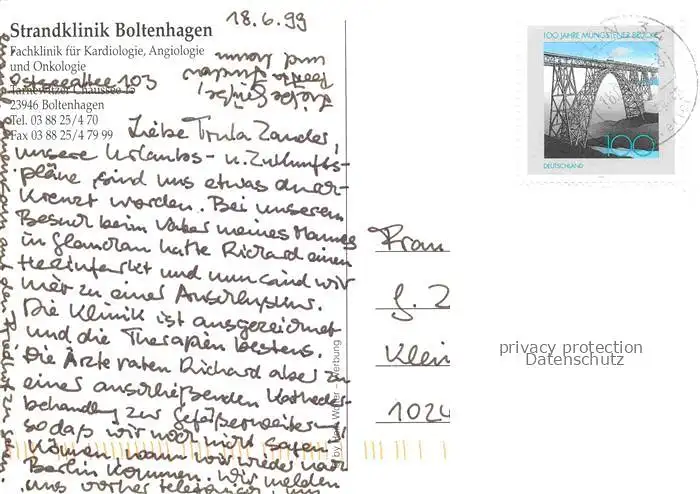 Strandklinik Boltenhagen
Fachklinik für Kardiologie, Angiologie
und Onkologie
Ostseeallee 103
Tarnewitzer Chaussee
23946 Boltenhagen
Tel. 03 88 25/4 70
Fax 03 88 25/4 79 99
18.6.99
Liebe Zander,
unsere Urlaubs- u. Zukunfts-
pläne sind uns etwas durch-
kreuzt worden. Bei unserem
Besuch beim Vater meines Mannes
in hatte Richard einen
Herzinfarkt und nun sind wir
hier zu einer
Die Klinik ist ausgezeichnet
und die Therapien bestens.
Die Ärzte raten Richard aber zu
einer anschließenden Katheder-
behandlung zur Gefäßerweiterung
sodaß wir noch nicht sagen
können wann wir wieder nach
Berlin kommen. Wir melden
uns vorher telefonisch, um
Liebe Grüße,
und
Frau
G. Z
Klein
1024
100 JAHRE MÜNGSTENER BRÜCKE
100
DEUTSCHLAND
privacy protection
Datenschutz